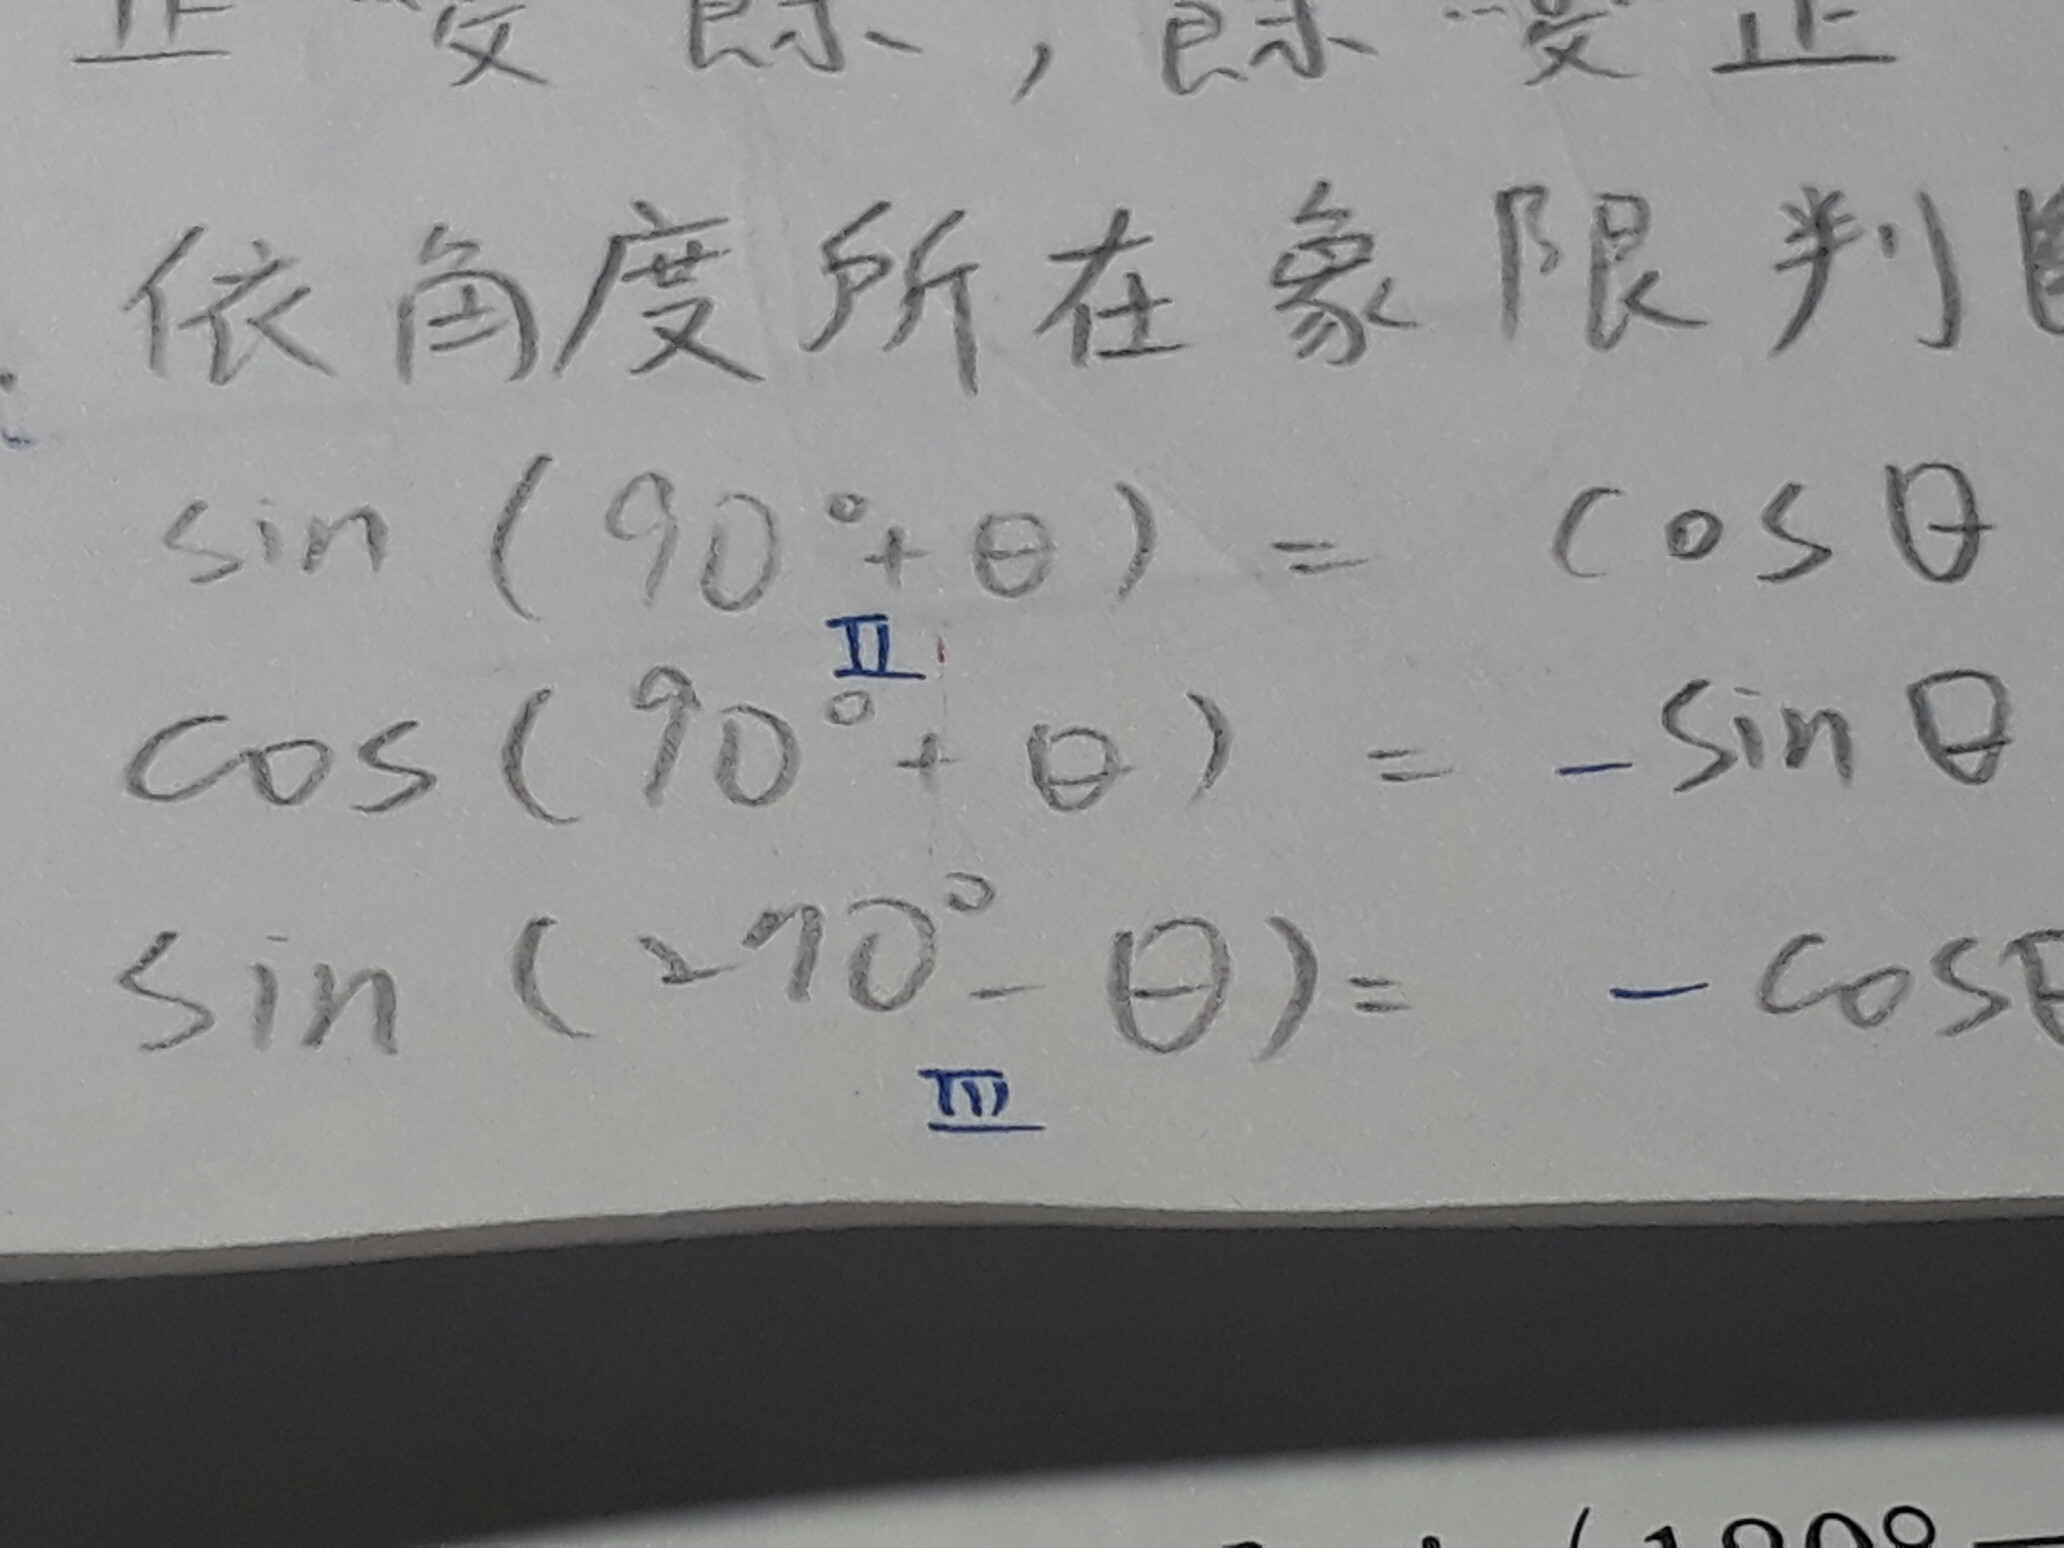 正變餘，餘變正
依角度所在象限判
sin (90°+θ) = cosθ
II
cos(90°+θ) = -sinθ
sin (270°-θ)= -cosθ
III
(180°-